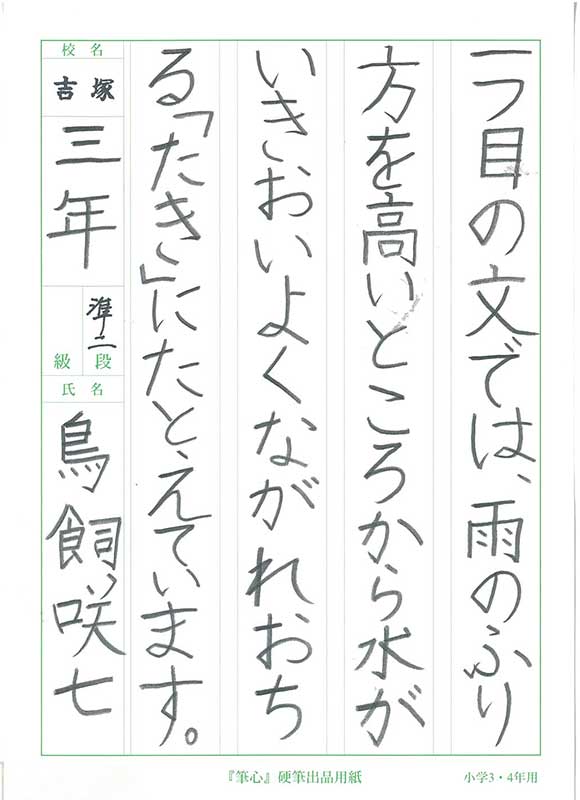 一つ目の文では、雨のふり
方を高いところから水が
いきおいよくながれおち
る「たき」にたとえています。
校名
吉塚
三年
準二
級 段
氏名
鳥飼咲七
『筆心』硬筆出品用紙
小学3・4年用